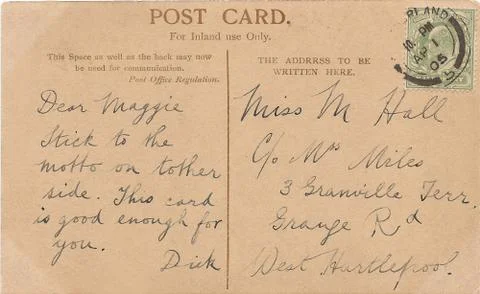 POST CARD.
For Inland use Only.
This Space as well as the back may now
be used for communication.
Post Office Regulation.
THE ADDRRSS TO BE
WRITTEN HERE.
Dear Maggie
Stick to the
motto on tother
side. This card
is good enough for
you.
Dick
Miss M Hall
C/o Mrs Miles
3 Granville Terr.
Grange Rd
West Hartlepool.
RLAND
10. PM
AP 1
05